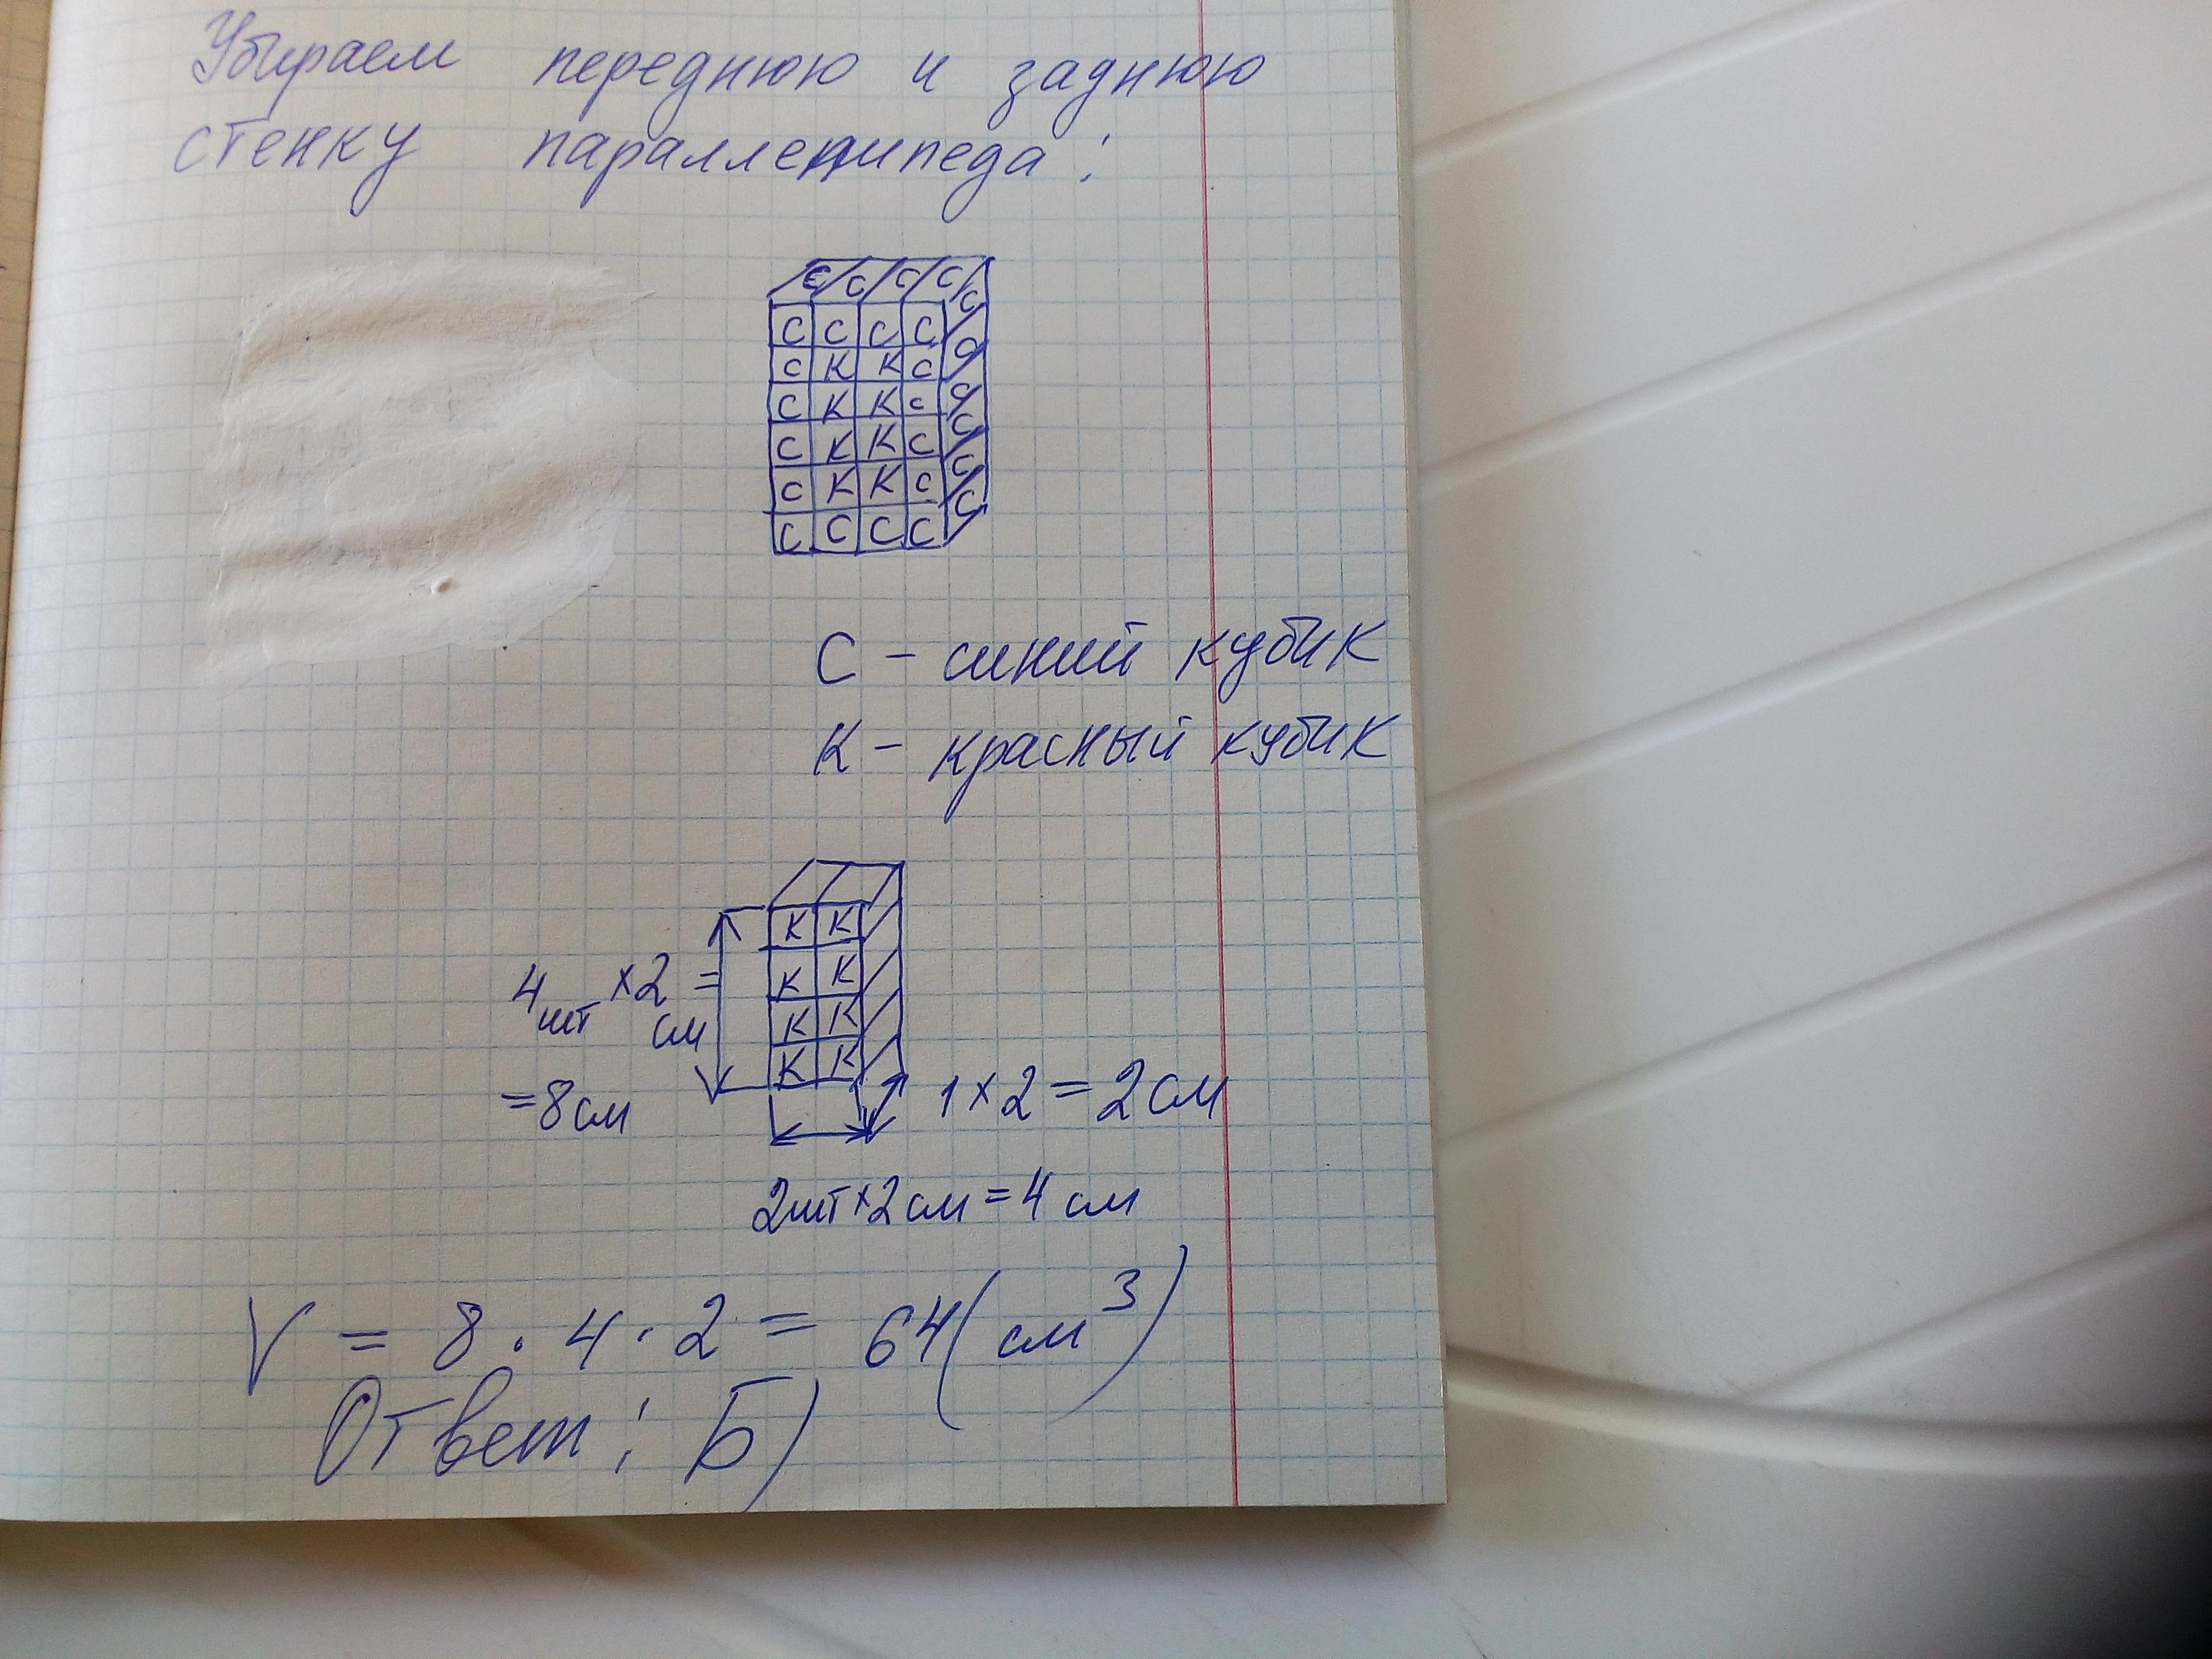 Убираем переднюю и заднюю
стенку параллелипипеда:
С С С С С
С С С С С
С К К С С
С К К С С
С К К С С
С К К С С
С С С С
С - синий кубик
К - красный кубик
К К
К К
К К
К К
4шт ×2 =
см
=8см
1×2=2см
2шт×2см=4см
V = 8·4·2 = 64(см³)
Ответ: Б)